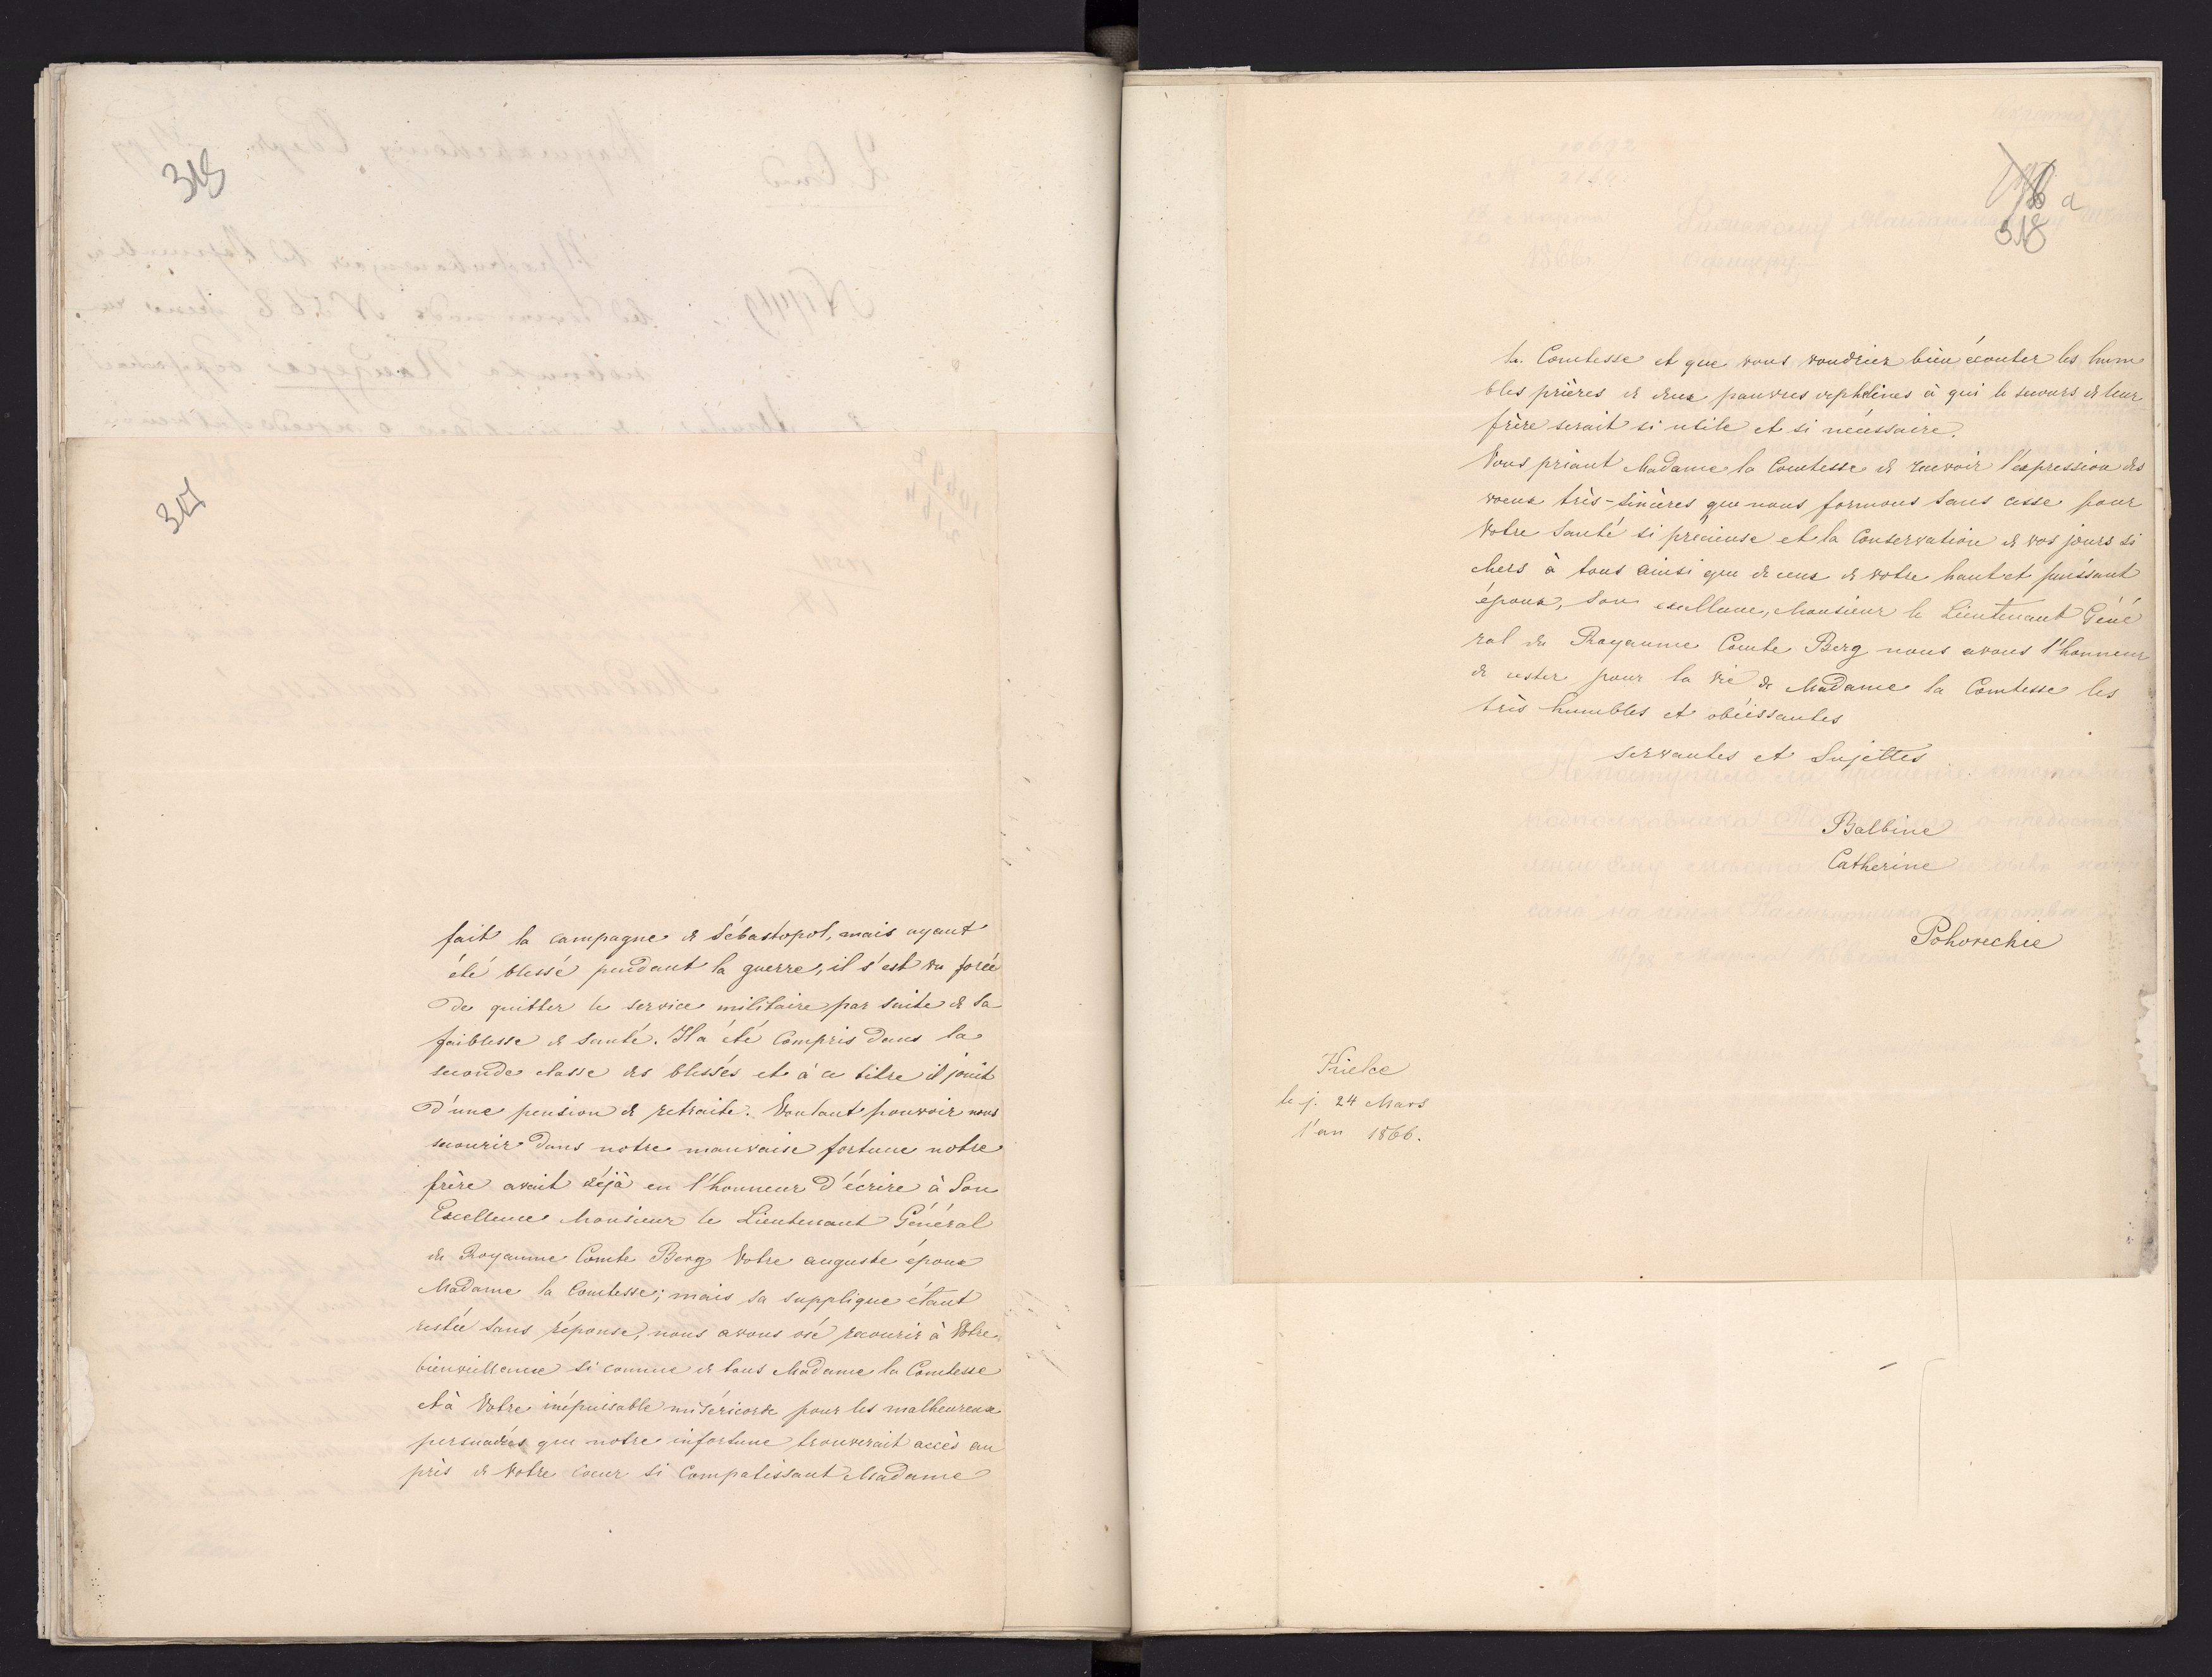 318
317
fait la campagne de Sébastopol, mais ayant
été blessé pendant la guerre, il s'est vu forcé
de quitter le service militaire par suite de sa
faiblesse de santé. Il a été compris dans la
seconde classe des blessés et à ce titre il jouit
d'une pension de retraite. Voulant pouvoir nous
secourir dans notre mauvaise fortune notre
frère avait déjà eu l'honneur d'écrire à Son
Excellence Monsieur le Lieutenant Général
du Royaume Comte Berg Votre auguste époux
Madame la Comtesse; mais sa supplique étant
restée sans réponse, nous avons osé recourir à Votre
bienveillance si connue de tous Madame la Comtesse
et à Votre inépuisable miséricorde pour les malheureux
persuadées que notre infortune trouverait accès au
près de Votre coeur si compatissant Madame
a
318
la Comtesse et que vous voudriez bien écouter les hum
bles prières de deux pauvres orphelines à qui le secours de leur
frère serait si utile et si nécessaire.
Vous priant Madame la Comtesse de recevoir l'expression des
voeux très-sincères que nous formons sans cesse pour
Votre Santé si précieuse et la Conservation de vos jours si
chers à tous ainsi que de ceux de votre haut et puissant
époux, Son excellence, Monsieur le Lieutenant Géné
ral du Royaume Comte Berg nous avons l'honneur
de rester pour la vie de Madame la Comtesse les
très humbles et obéissantes
servantes et Sujettes
Balbine
Catherine
Pohorechie
Kielce
le j. 24 Mars
l'an 1866.